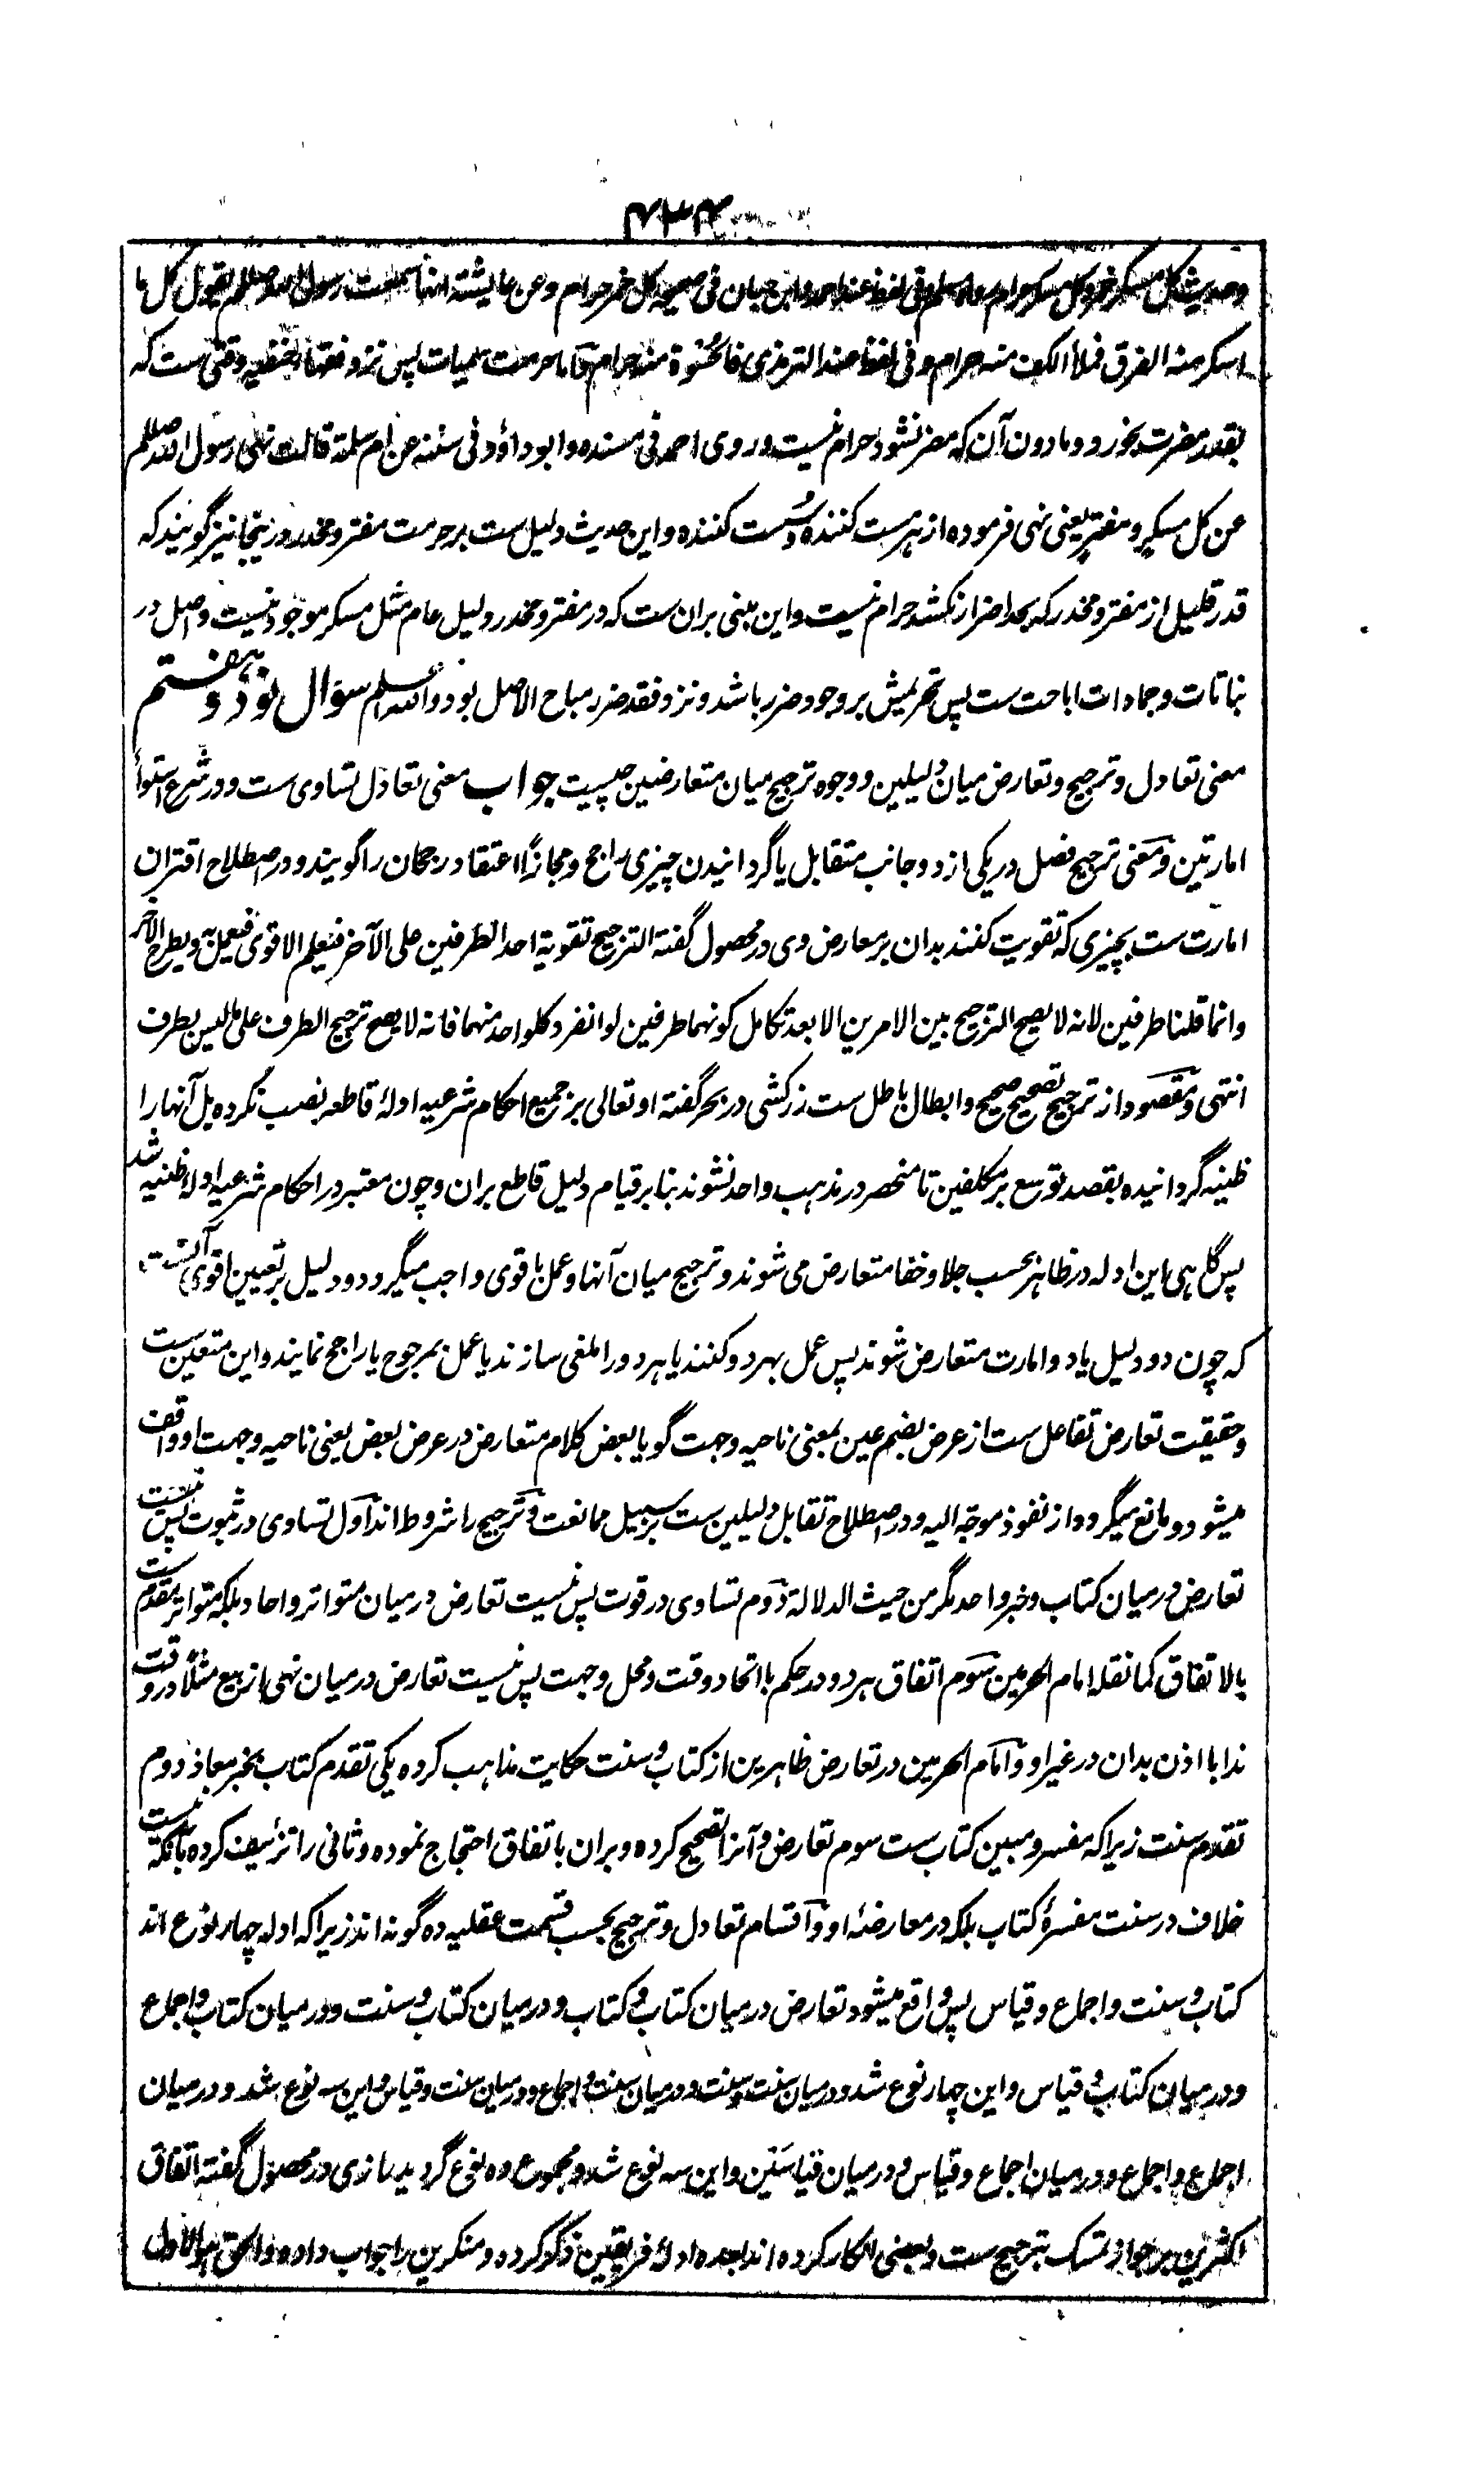 ۴۳۴
وحدیث کل مسکر خمر وکل مسکر حرام رواه مسلم وفی لفظ عند احمد وابن حبان فی صحیحه کل خمر حرام وعن عایشة انها سمعت رسول الله صللم یقول کل ما
اسکر منه الفرق فملأ الکف منه حرام وفی لفظ عند الترمذی فالحسوة منه حرام واما حرمت سمیات پس نزد فقهاء حنفیه وقتی ست که
بقدر مضرت بخورد ومادون آن که مضر نشود حرام نیست وروی احمد فی مسنده وابو داؤد فی سننه عن ام سلمة قالت نهی رسول الله صللم
عن کل مسکر ومفتر یعنی نهی فرموده از هر مست کننده وسست کننده واین حدیث دلیل ست بر حرمت مفتر ومخدر ودر ینجا نیز گویند که
قدر قلیل از مفتر ومخدر که بحد اضرار نکشد حرام نیست واین مبنی بران ست که در مفتر ومخدر دلیل عام مثل مسکر موجود نیست واصل در
نباتات وجمادات اباحت ست پس تحریمش بر وجود ضرر باشد ونزد فقد ضرر مباح الاصل بود والله اعلم سوال نود وهفتم
معنی تعادل وترجیح وتعارض میان دلیلین ووجوه ترجیح میان متعارضین چیست جواب معنی تعادل تساوی ست ودر شرع استواء
امارتین ومعنی ترجیح فضل در یکی از دو جانب متقابل یا گردانیدن چیزی راجح ومجازاً اعتقاد رجحان را گویند ودر اصطلاح اقتران
امارت ست بچیزی که تقویت کنند بدان بر معارض وی در محصول گفته الترجیح تقویة احد الطرفین علی الآخر فیعلم الاقوی فیعمل به ویطرح الآخر
وانما قلنا طرفین لانه لا یصح الترجیح بین الامرین الا بعد تکامل کونهما طرفین لو انفرد کلواحد منهما فانه لا یصح ترجیح الطرف علی ما لیس بطرف
انتهی ومقصود از ترجیح تصحیح صحیح وابطال باطل ست زرکشی در بحر گفته او تعالی بر جمیع احکام شرعیه ادلۀ قاطعه نصب نکرده بل آنها را
ظنیه گردانیده بقصد توسع بر مکلفین تا منحصر در مذهب واحد نشوند بنا بر قیام دلیل قاطع بران وچون معتبر در احکام شرعیه ادلۀ ظنیه شد
پس گاهی این ادله در ظاهر بحسب جلا وخفا متعارض می شوند وترجیح میان آنها وعمل باقوی واجب میگردد ودلیل بر تعیین اقوی آنست
که چون دو دلیل یا دو امارت متعارض شوند پس عمل بهردو کنند یا هردو را ملغی سازند یا عمل بمرجوح یا راجح نمایند واین متعین ست
وحقیقت تعارض تفاعل ست از عرض بضم عین بمعنی ناحیه وجهت گویا بعض کلام متعارض در عرض بعض یعنی ناحیه وجهت او واقف
میشود ومانع میگردد از نفوذ موجّه الیه ودر اصطلاح تقابل دلیلین ست بر سبیل ممانعت وترجیح را شروط اند اول تساوی در ثبوت پس نیست
تعارض در میان کتاب وخبر واحد مگر من حیث الدلالة دوم تساوی در قوت پس نیست تعارض در میان متواتر واحاد بلکه متواتر مقدم ست
بالاتفاق کما نقله امام الحرمین سوم اتفاق هردو در حکم با اتحاد وقت ومحل وجهت پس نیست تعارض در میان نهی از بیع مثلاً در وقت
ندا با اذن بدان در غیر او وامام الحرمین در تعارض ظاهرین از کتاب وسنت حکایت مذاهب کرده یکی تقدم کتاب بخبر معاذ دوم
تقدم سنت زیرا که مفسر ومبین کتاب ست سوم تعارض وآنرا تصحیح کرده وبران باتفاق احتجاج نموده وثانی را تزئیف کرده بآنکه نیست
خلاف در سنت مفسرۀ کتاب بلکه در معارضۀ او واقسام تعادل وترجیح بحسب قسمت عقلیه ده گونه اند زیرا که ادله چهار نوع اند
کتاب وسنت واجماع وقیاس پس واقع میشود تعارض در میان کتاب وکتاب ودر میان کتاب وسنت ودر میان کتاب واجماع
ودر میان کتاب وقیاس واین چهار نوع شد ودر میان سنت وسنت ودر میان سنت واجماع ودر میان سنت وقیاس واین سه نوع شد ودر میان
اجماع واجماع ودر میان اجماع وقیاس ودر میان قیاسین واین سه نوع شد ومجموع ده نوع گردید رازی در محصول گفته اتفاق
اکثرین بر جواز تمسک بترجیح ست وبعضی انکار کرده اند بعده ادلۀ فریقین ذکر کرده ومنکرین را جواب داده والحق هو الاول